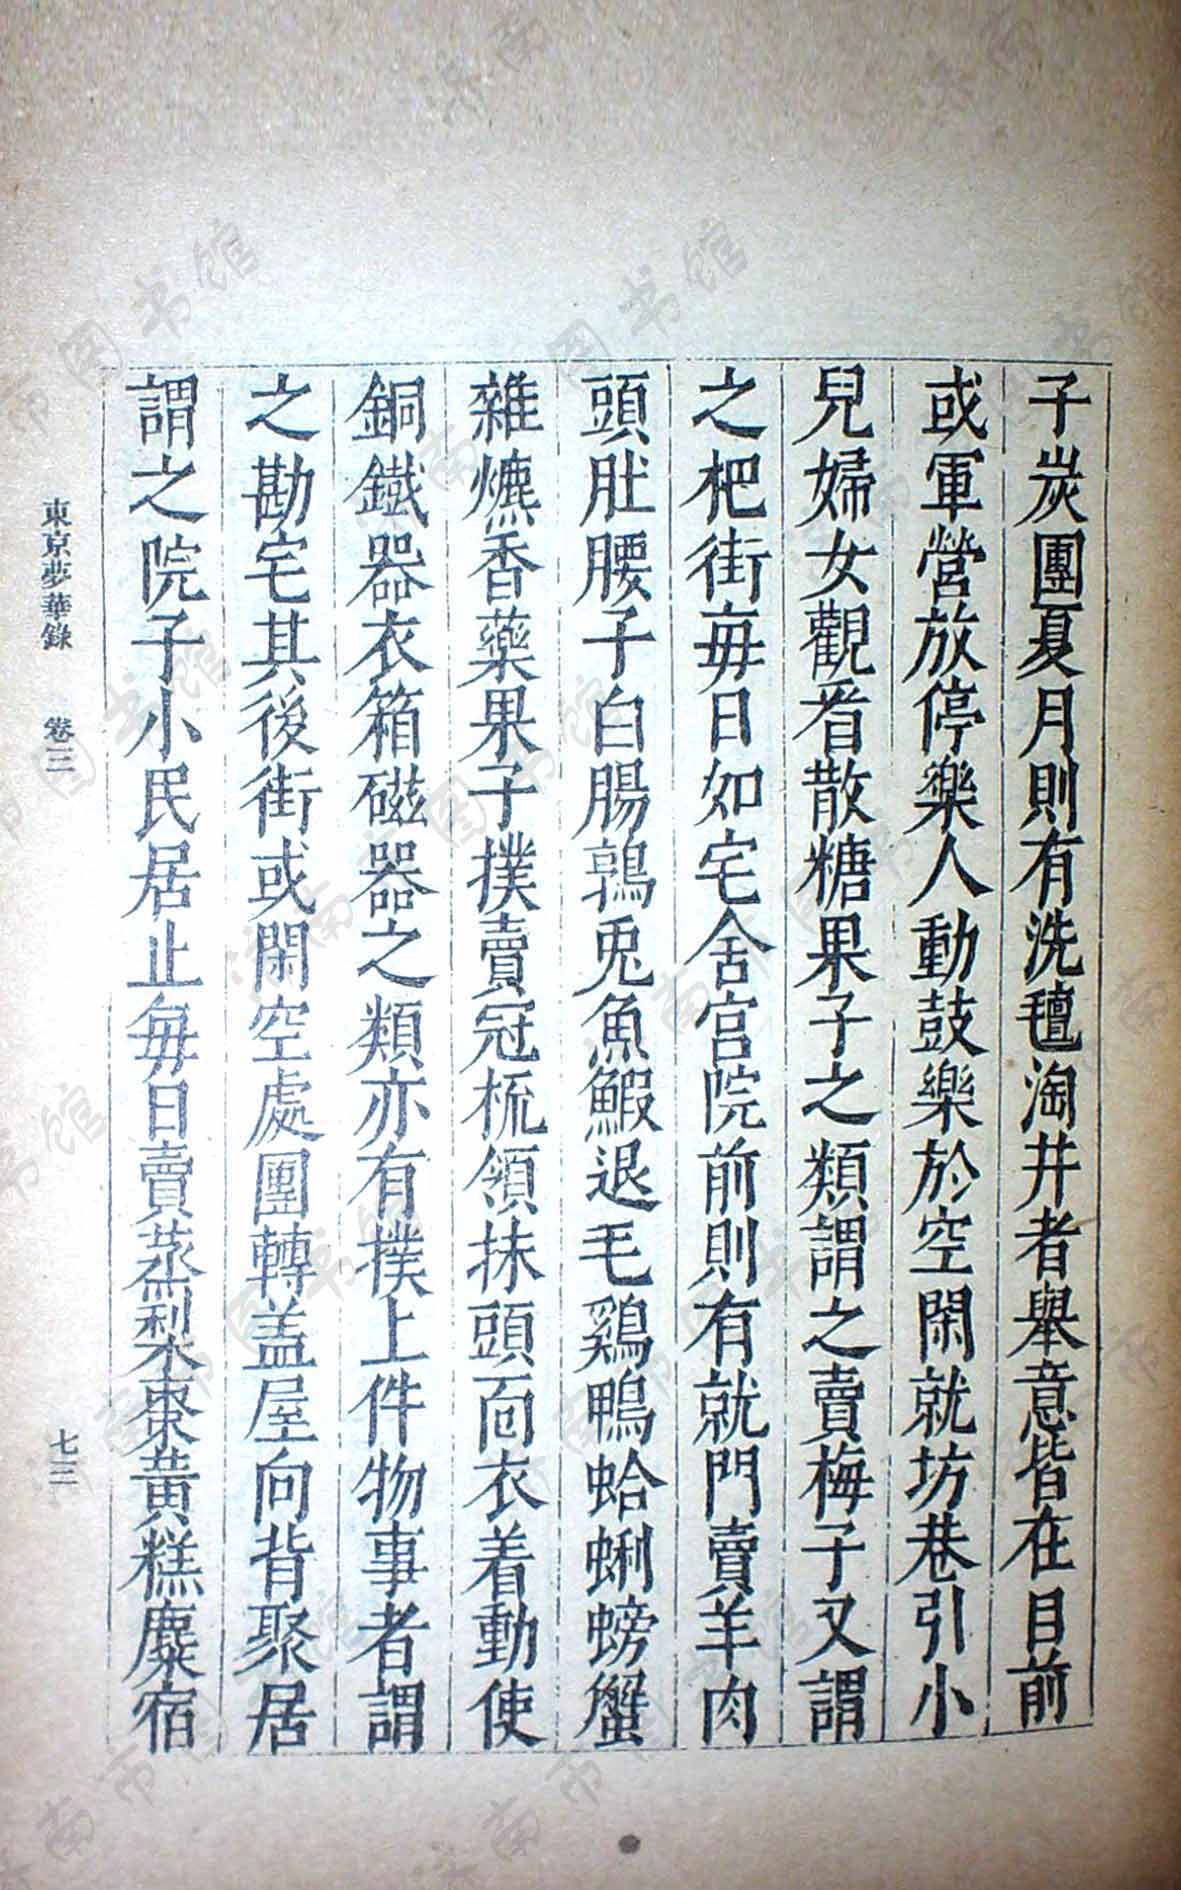 子炭團夏月則有洗氊淘井者舉意皆在目前
或軍營放停樂人動鼓樂於空閑就坊巷引小
兒婦女觀看散糖果子之類謂之賣梅子又謂
之杷街每日如宅舍宫院前則有就門賣羊肉
頭肚腰子白腸鶉兎魚鰕退毛鷄鴨蛤蜊螃蠏
雜燠香藥果子撲賣冠梳領抹頭面衣着動使
銅鐵器衣箱磁器之類亦有撲上件物事者謂
之勘宅其後街或閑空處團轉盖屋向背聚居
謂之院子小民居止每日賣蒸梨棗黄糕麋宿
東京夢華錄 卷三 七三
济南市图书馆